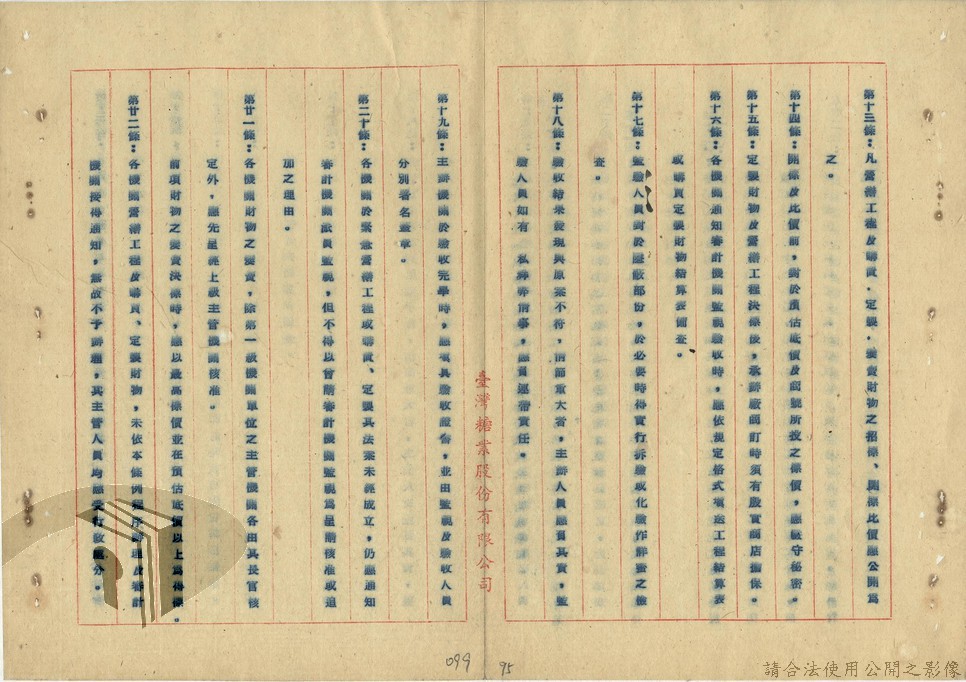 第十三條：凡營繕工程及購置、定製、變賣財物之招標、開標比價應公開為
之。
第十四條：開標及比價前，對於預估底價及商號所投之標價，應嚴守秘密。
第十五條：定製財物及營繕工程決標後，承辦廠商訂時須有殷實商店擔保。
第十六條：各機關通知審計機關監視驗收時，應依規定格式填送工程結算表
或購置定製財物結算表備查。
第十七條：監驗人員對於隱蔽部份，於必要時得實行拆驗或化驗作詳密之檢
查。
第十八條：驗收結果發現與原案不符，情節重大者，主辦人員應負其責，監
驗人員如有 私舞弊情事，應負連帶責任。
臺灣糖業股份有限公司
第十九條：主辦機關於驗收完畢時，應填具驗收證書，並由監視及驗收人員
分別署名蓋章。
第二十條：各機關於緊急營繕工程或購置、定製其法案未經成立，仍應通知
審計機關派員監視，但不得以曾請審計機關監視為呈請核准或追
加之理由。
第廿一條：各機關財物之變賣，除第一級機關單位之主管機關各由其長官核
定外，應先呈經上級主管機關核准。
前項財物之變賣決標時，應以最高標價並在預估底價以上為得標。
第廿二條：各機關營繕工程及購置、定製財物，未依本條例程序辦理及審計
機關接得通知，無故不予辦理，其主管人員均應受行政處分。
099
95
請合法使用公開之影像